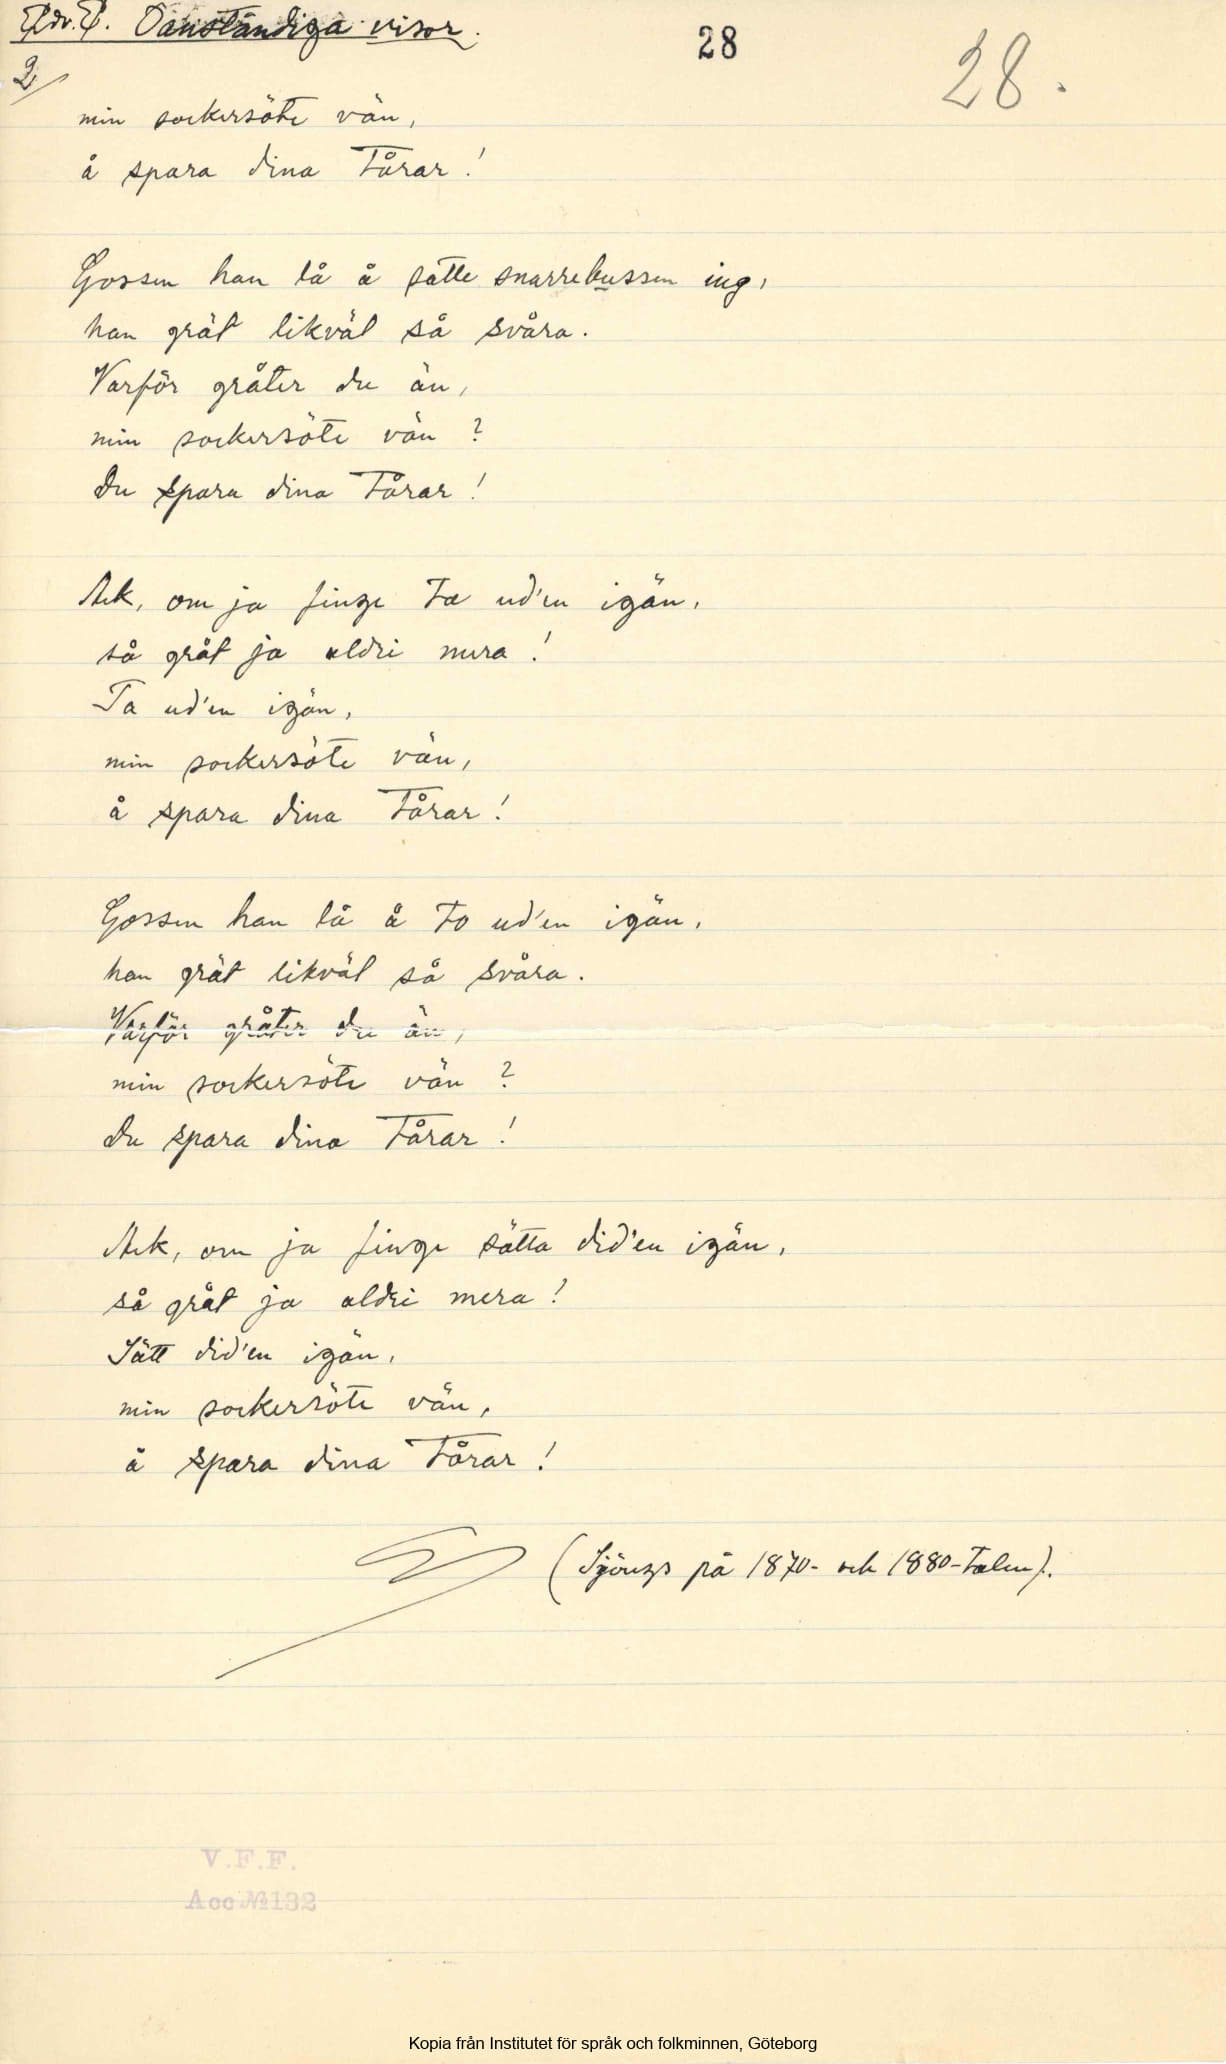 Edv. E. Oanständiga visor.
28
28.
2/
min sockersöte vän,
å spara dina tårar!
Gossen han lå å satte snarrebussen ing,
han grät likväl så svåra.
Varför gråter du än,
min sockersöte vän?
Du spara dina tårar!
Ack, om ja finge ta ud'en igän,
så gråt ja aldri mera!
Ta ud'en igän,
min sockersöte vän,
å spara dina tårar!
Gossen han lå å to ud'en igän,
han grät likväl så svåra.
Varför gråter du än,
min sockersöte vän?
Du spara dina tårar!
Ack, om ja finge sätta did'en igän,
så gråt ja aldri mera!
Sätt did'en igän,
min sockersöte vän,
å spara dina tårar!
(Sjöngs på 1870- och 1880-talen).
V.F.F.
Acc №132
Kopia från Institutet för språk och folkminnen, Göteborg